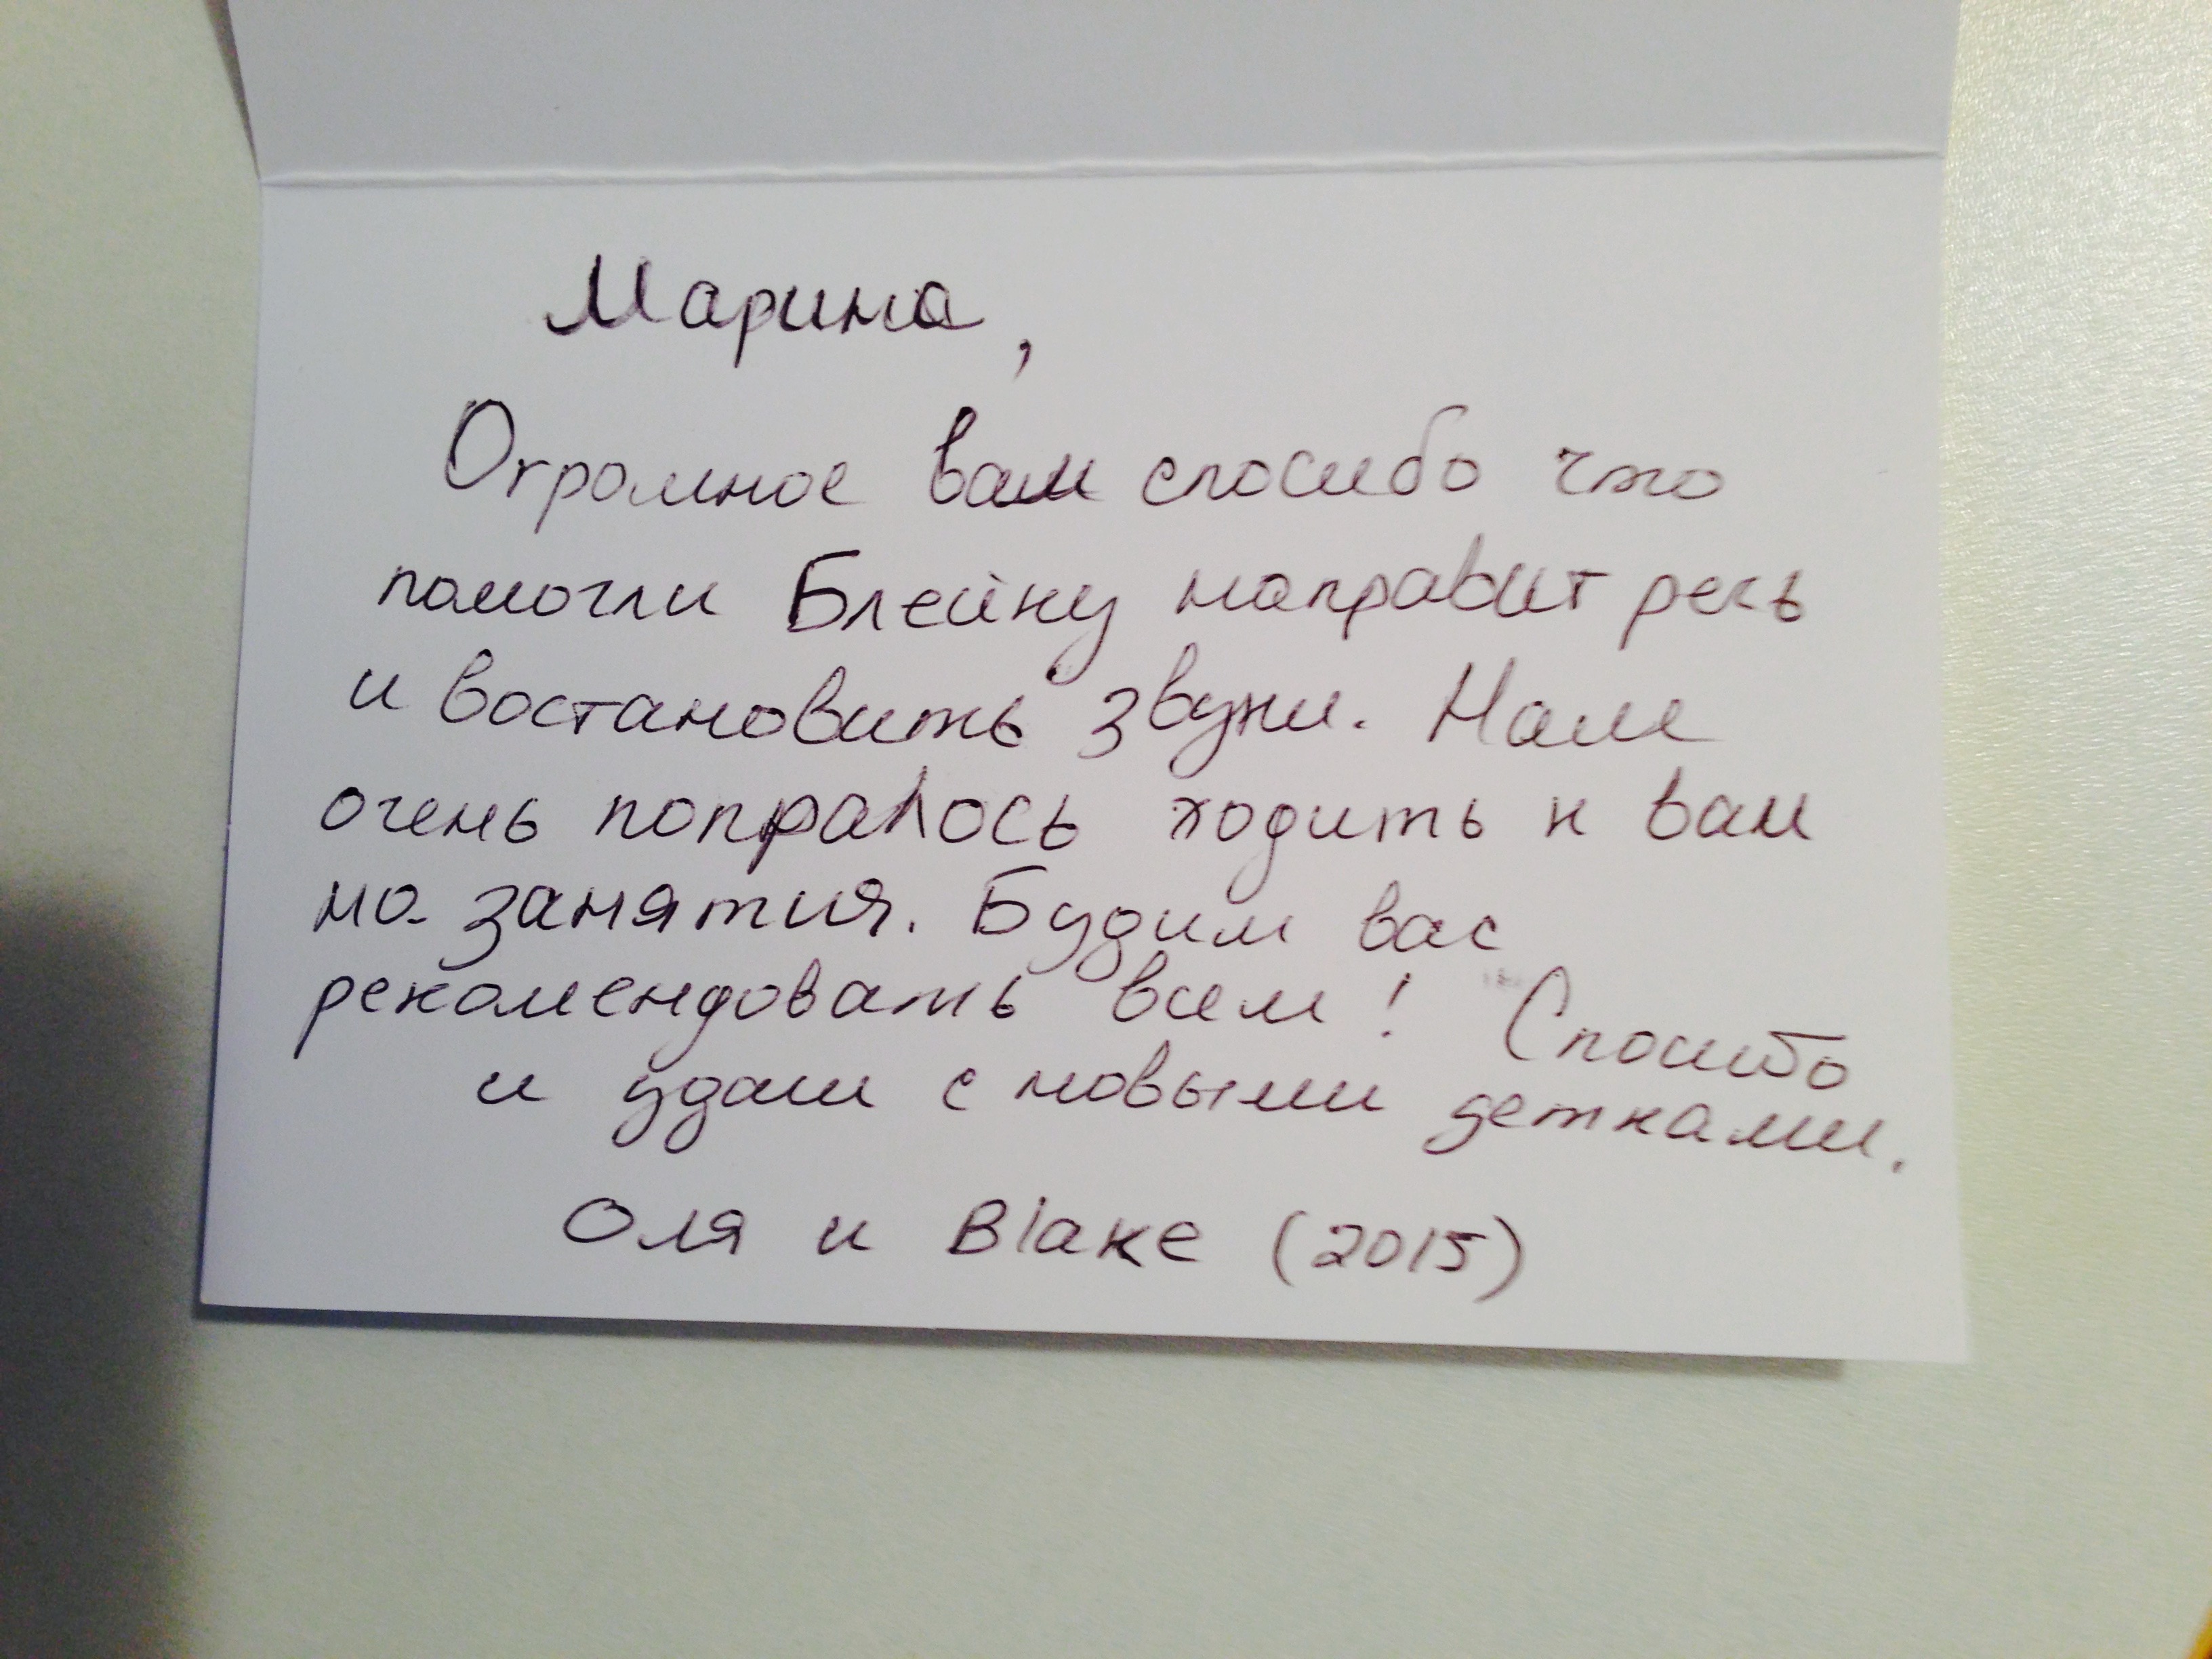 Марина,
Огромное вам спасибо что
помогли Блейну направит речь
и востановить звуки. Нам
очень попралось ходить к вам
на занятия. Будим вас
рекомендовать всем! Спасибо
и удачи с новыми детками.
Оля и Blake (2015)